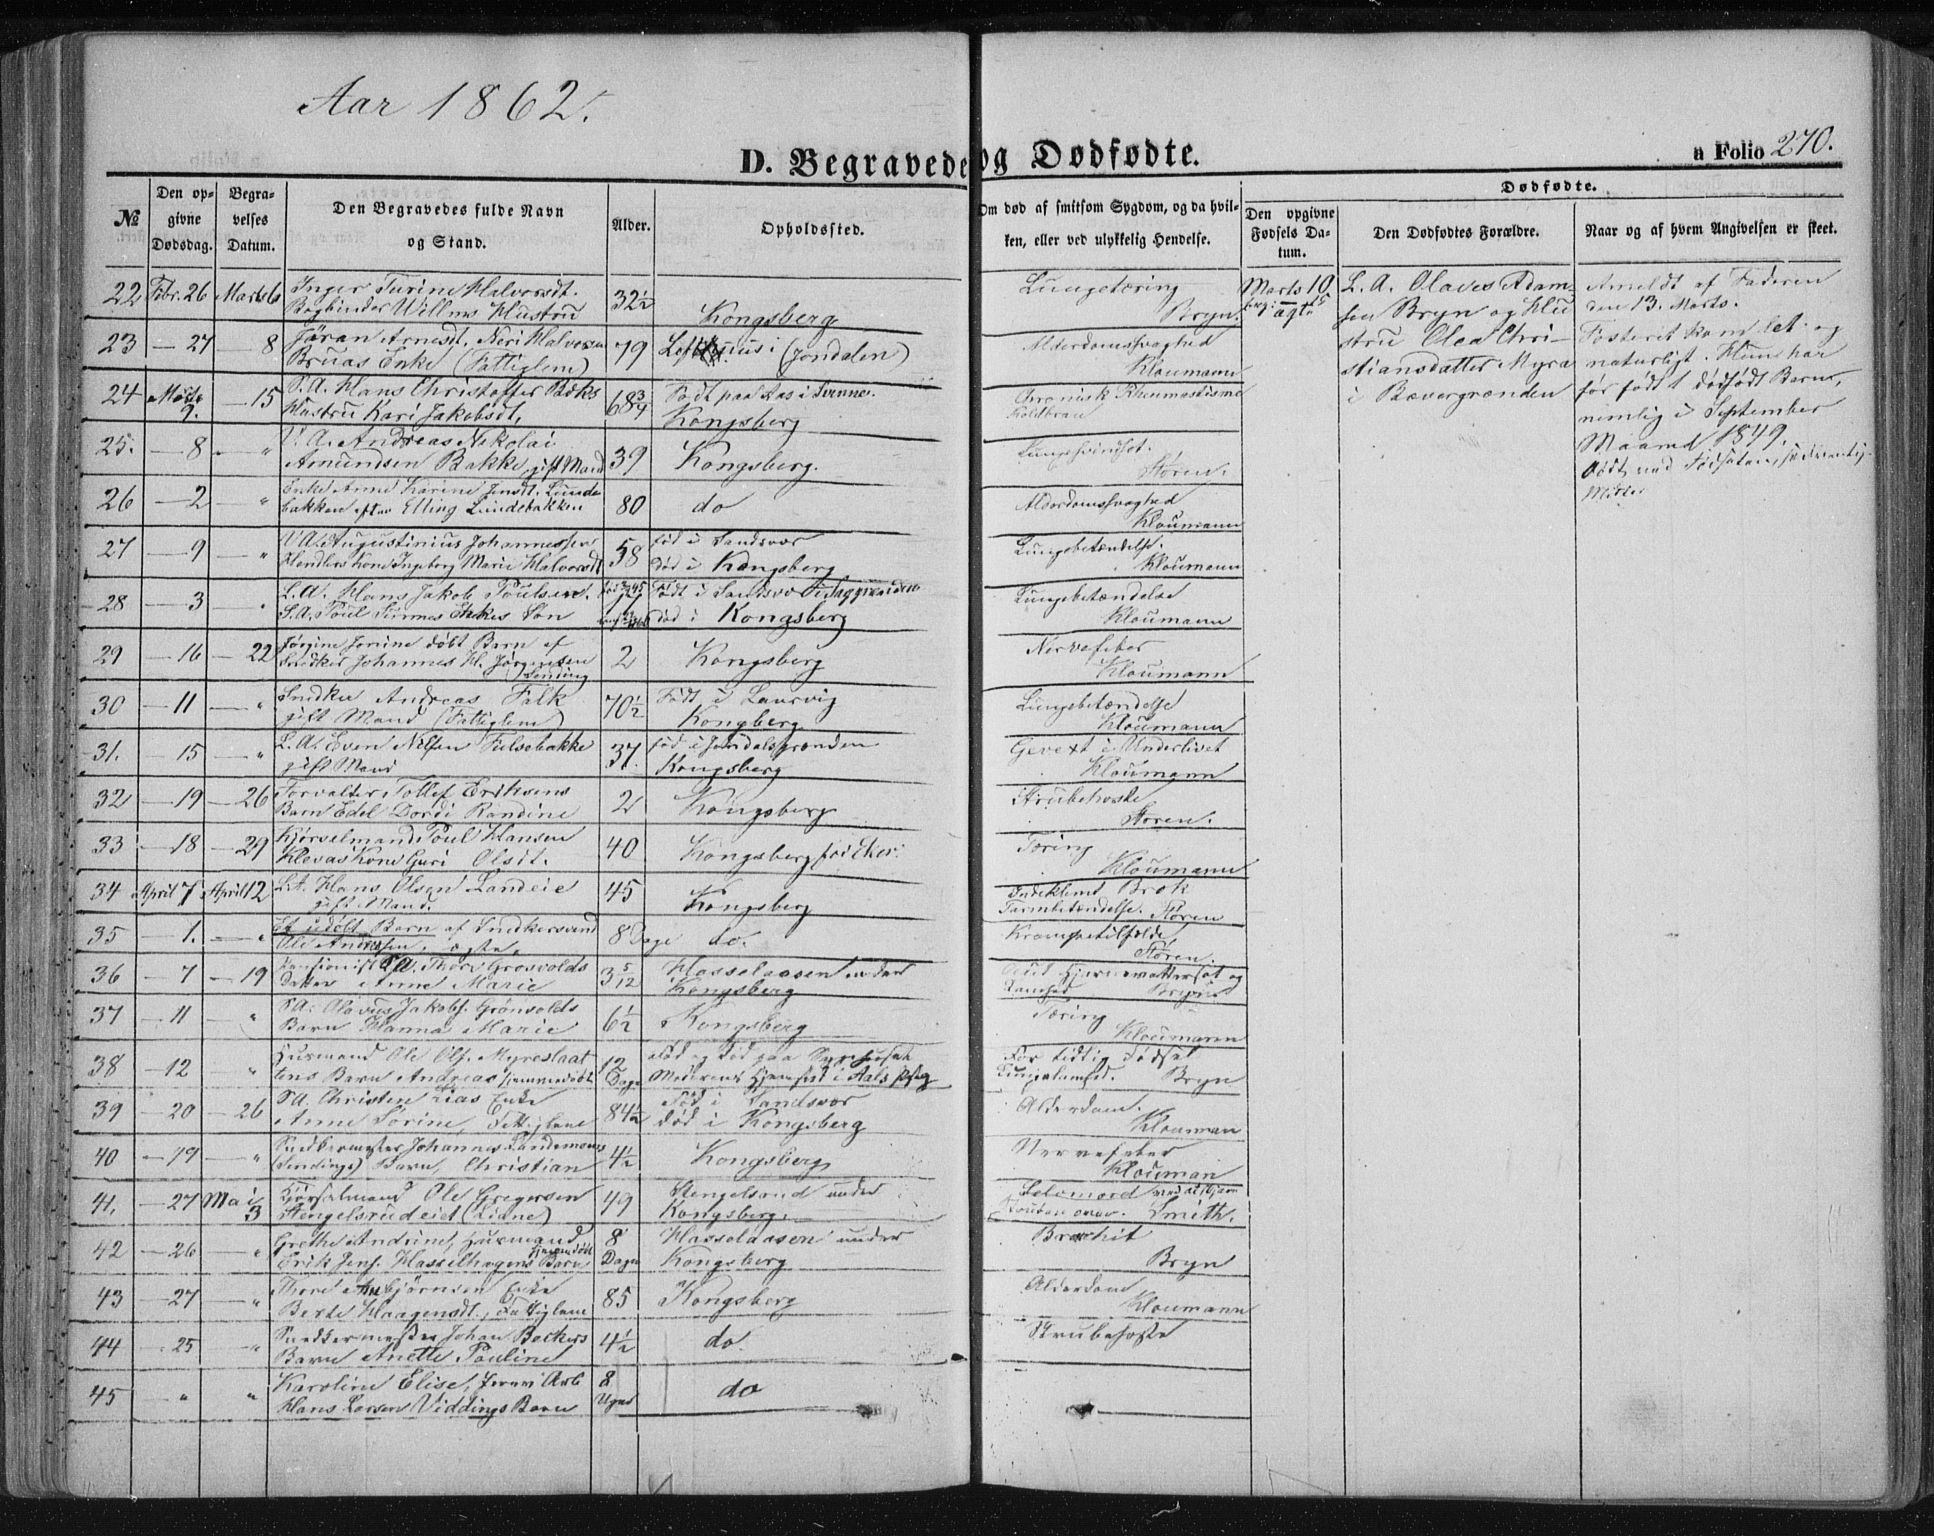 Aar 1862.
D. Begravede og Dødfødte.
a Folio 270.
№
Den opgivne Dødsdag.
Begravelses Datum.
Den Begravedes fulde Navn og Stand.
Alder.
Opholdssted.
Om død af smitsom Sygdom, og da hvilken, eller ved ulykkelig Hendelse.
Dødfødte.
Den opgivne Fødsels Datum.
Den Dødfødtes Forældre.
Naar og af hvem Angivelsen er skeet.
22 Febr. 26 Marts 6 Inger Turine Halvorsdt. 32½ Kongsberg Lungetæring
Bogbinder Willms Hustru Bryn.
23 — 27 — 8 Jøran Arnesdt. Neri Halvorsen 79 i (Jondalen) Alderdomssvaghed
Bruas Enke (Fattiglem) Kloumann
24 Marts 9. — 15 S.A. Hans Christoffer Bæks 68¾ Født paa i Svenne. Chronisk Rheumatisme
Hustru Kari Jakobsdt. Kongsberg Koldbran
25. — 8 — " V.A. Andreas Nikolai 39 Kongsberg. Lungesvindsot.
Amundsen Bakke, gift Mand Støren.
26 — 2 — " Enke Anne Karine Jensdt. Lunde 80 do Alderdomssvaghed
bakken efter Elling Lundebakken Kloumann
27 — 9 — " V.A. Augustinius Johannessen 58 Fød i Sandsvær Lungebetændelse.
Hendlers Kone Ingeborg Marie Halvorsdt død i Kongsberg Kloumann
28 — 3 — " L.A. Hans Jakob Poulsen, Født i Sandsvær Lungebetændelse
S.A. Poul Enkes Søn død i Kongsberg Kloumann
29 — 16 — 22 Jørgine Jorine døbt Barn af 2 Kongsberg Nervefeber
Snidker Johannes H. Jørgensen Kloumann
(Sending)
30 — 11 — " Snidker Andreas Falk 70½ Født i Laurvig Lungebetændelse
gift Mand (Fattiglem) Kongberg Kloumann
31. — 15 — " L.A. Even Nilsen Fulsebakke 37. fød i Jondalsgrænden Gevext i Underlivet
gift Mand Kongsberg Kloumann
32 — 19 — 26 Forvalter Tollef Eriksens 2 Kongsberg Strubehoste
Barn Edel Dordi Randine Støren.
33 — 18 — 29 Kjørselmand Poul Hansen 40 Kongsberg Tæring
Klevas Kone Guri Olsdt. Kloumann
34 April 7 April 12 L.A. Hans Olsen Landeie 45 Kongsberg Indeklemt Brok
gift Mand. Tarmbetændelse. Støren
35 — 1. — " Et udøbt Barn af Snidkersvend 8 Dage do. Krampetilfælde
Ole Andersen, ægte, Støren.
36 — 7 — 19 Pensionist S.A. Thore Grosvolds 3 5/12 Hasselaasen under
datter Anne Marie Kongsberg Bryn
37 — 11 — " S.A. Olavus Jakobs. Grønvolds 6½ Kongsberg Tæring
Barn Hanna Marie Kloumann
38 — 12 — " Husmand Ole Ols. Myreslaat 12 Fød og død paa Sygehuset For tidlig Fødsel
tens Barn Andreas hjemmedøbt Dage Moderens Hjemsted i Aals Bryn
39 — 20 — 26 S.A. Christen Lias Enke 84½ Fød i Sandsvær Alderdom.
Anne Sørine, død i Kongsberg Klouman
40 — 19 — " Snidkermester Johannes 4½ Kongsberg Nervefeber
(Sendings) Barn, Christian Klouman
41, — 27 Mai 3 Kjørselmand Ole Gregersen 49 Hengelsrud under Selvmord
Hengelsrudeiet (Lidne) Kongsberg. Smith.
42 — 26 — " Grethe Andrine, Husmand 8 Hasselaasen under
Erik Jens. Hasselhagens hjemmedøbt Barn Dage Kongsberg Bryn
43 — 27 — " Thore Asbjørnsen Enke 85 Kongsberg Alderdom
Berte Haagensdt., Fattiglem Kloumann
44 — 25 " Snidkermester Johan Beckers 4½ do Strubehoste
Barn Anette Pauline
45 " " Karoline Elise, 8 do
Hans Larsen Viddings Barn Uger
Marts 10. L.A. Olaves Adamsen Bryn og Hustru Olea Christiansdatter Myra i Bævergrænden
ægte
Anmeldt af Faderen
den 13. Marts.
Fosteret kom let og
naturligt. Hun har
før født 1 dødfødt Barn,
nemlig i September
Maaned 1849.